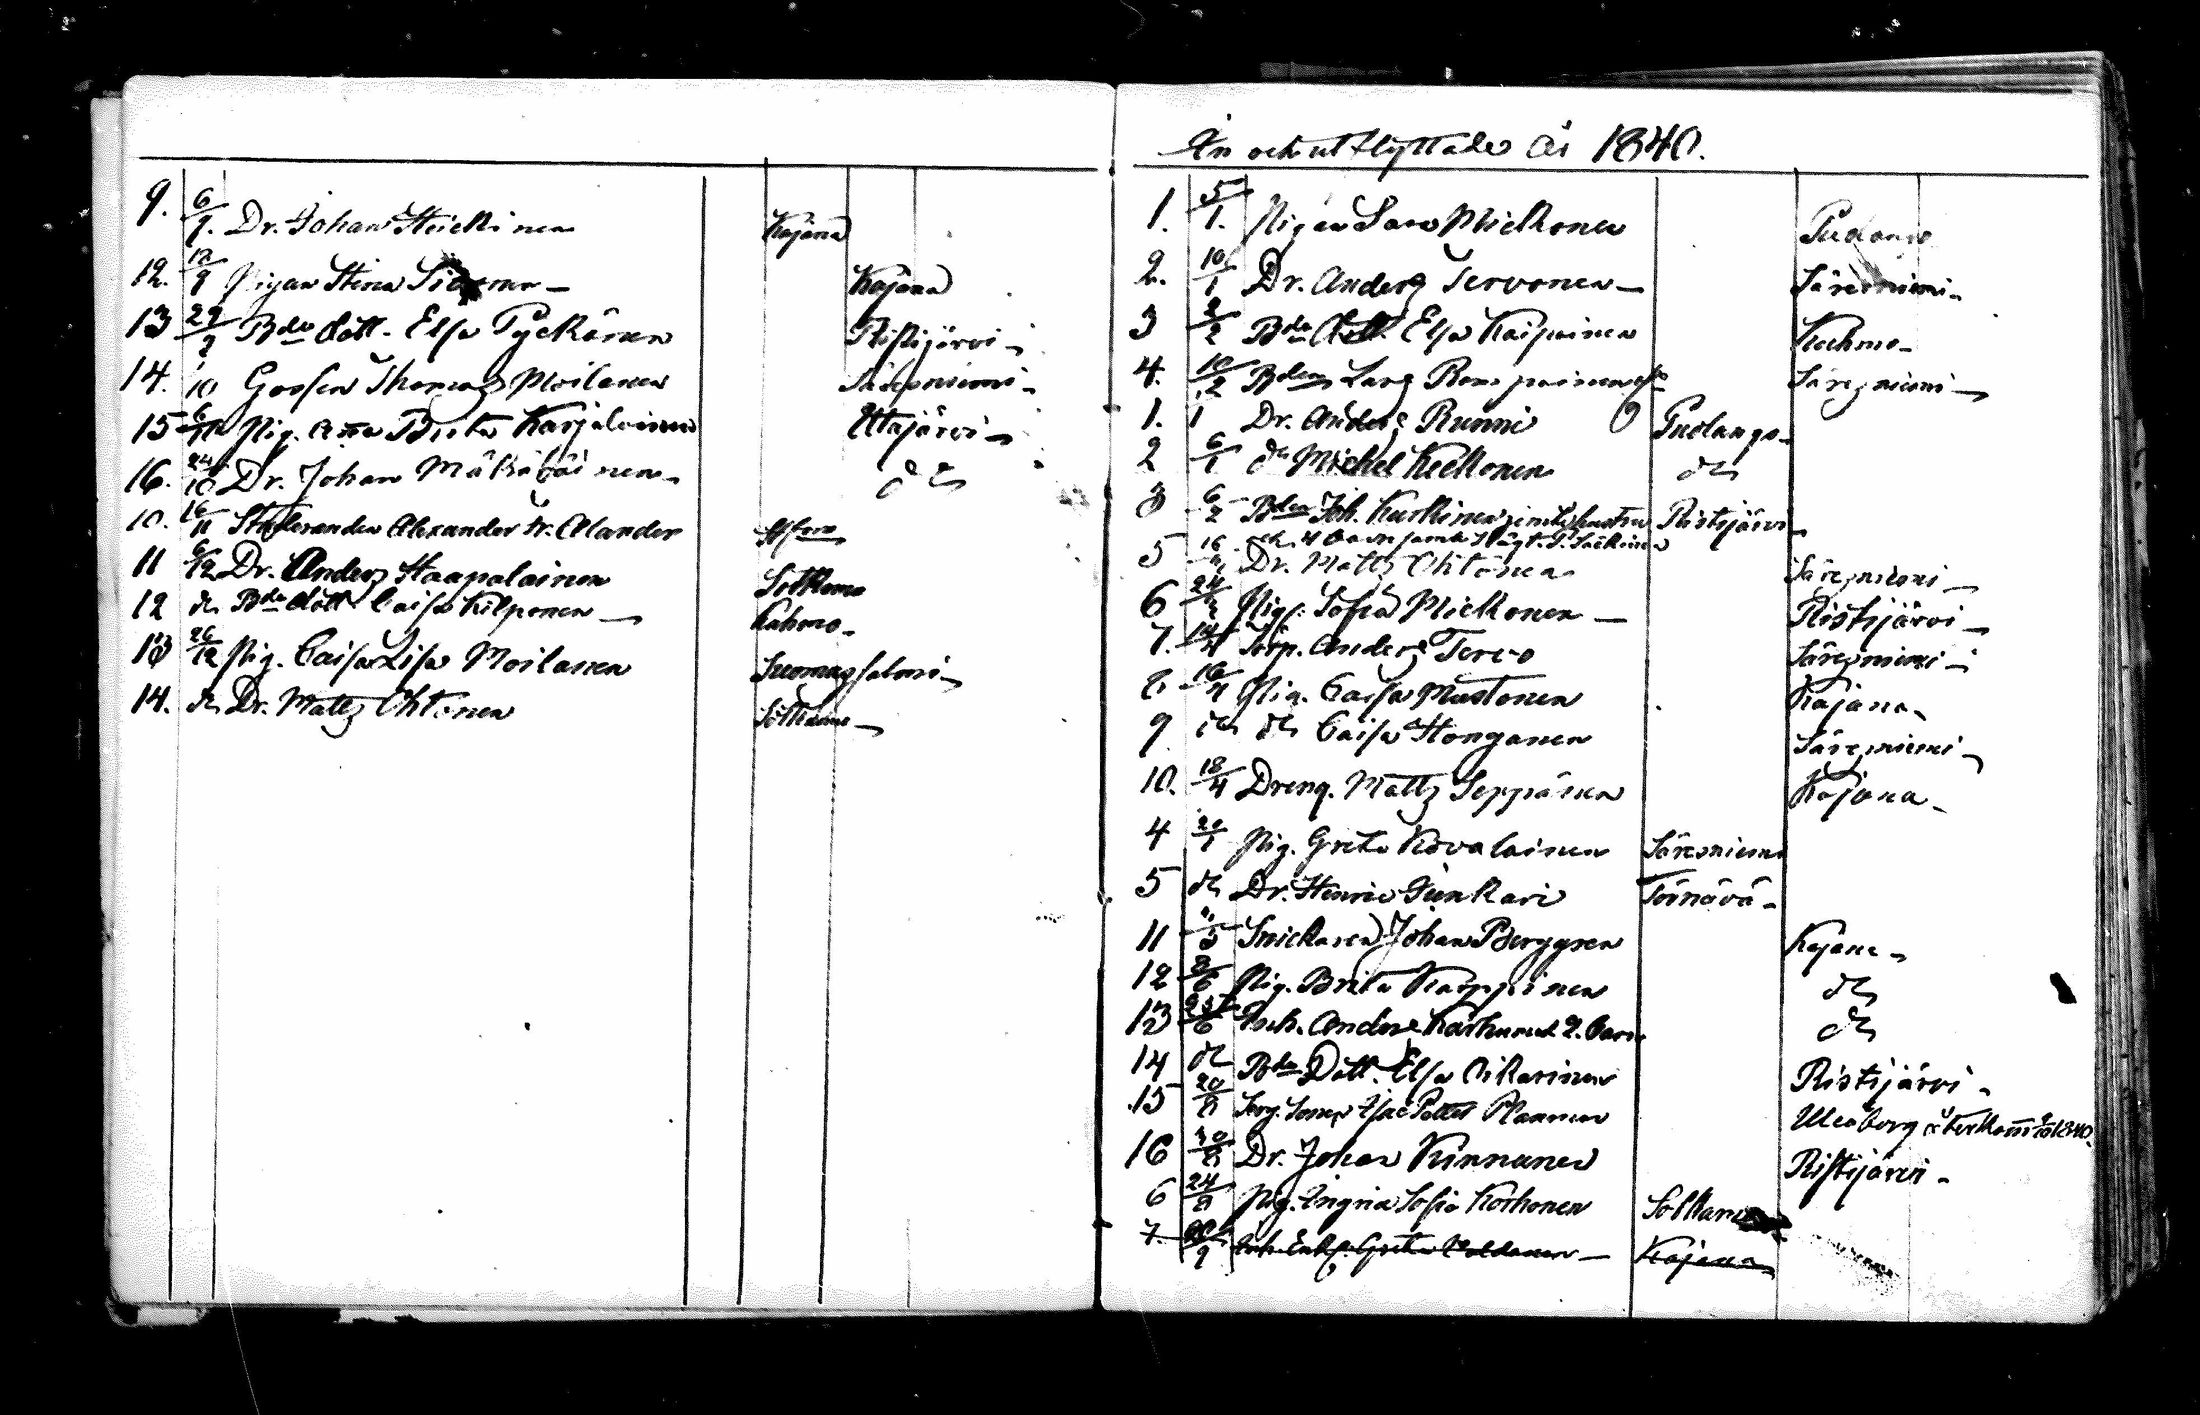 9. 6/9. Dr. Johan Heickinen Kajana
12. 12/9 Pigan Stina Kajana
13 29/9 Bde dött. Elsa Pyckönen Ristijärvi
14. 10 Gossen Thomas Moilanen Säresniemi
15 6/10 Pig. Anna Brita Karjalainen Utajärvi
16. 24/10 Dr. Johan Mähäläinen do
10. 16/11 Studeranden Alexander W. Alander
11 6/12 Dr. Anders Haapalainen Sotkamo
12 do Bde dött. Caisa Kilponen Kuhmo
13 26/12 Pig. Caisa Lisa Moilanen Suomussalmi
14. do Dr. Matts Ohtonen Sotkamo
In och utflyttade År 1840.
1. 5/1. Pigan Sara Mielkonen Pudas
2. 10/1 Dr. Anders Tervonen Säresniemi
3 2/2 Bde dött. Elsa Kaipainen Kuhmo
4. 10/2 Bden Lars Bomppainen Säresniemi
1. 1 Dr. Anders Runni Pudasj.
2 6/1 do Michel Keckonen do
3 6/2 Bden Joh. Kurkinen hustru Ristijärvi
och 4 barn samt
5 16 Dr. Matts Ohtonen Säresniemi
6 24 Pig. Sofia Mielkonen Ristijärvi
7. 14/4 Torp. Anders Tervo Säresniemi
8 16/4 Pig. Caisa Mustonen Kajana
9 do do Caisa Honganen Säresniemi
10. 18/4 Dreng. Matts Seppänen Kajana
4 Pig. Greta Kovalainen Säresniemi
5 do Dr. Henric Junkari Törnävä
11 /5 Snickaren Johan Berggren Kajana
12 2/6 Pig. Brita Karppinen do
13 25/6 Inh. Anders Karhu med 2. barn do
14 do Bde Dött. Elsa Oikarinen Ristijärvi
15 20/8 Serg. Sonen Isac Petter Planman Uleåborg återkom 1840.
16 30/8 Dr. Johan Kinnunen Ristijärvi
6 24/8 Pig. Ingrid Sofia Korhonen Sotkamo
7. 9 Inh. Enk. Greta Kajana